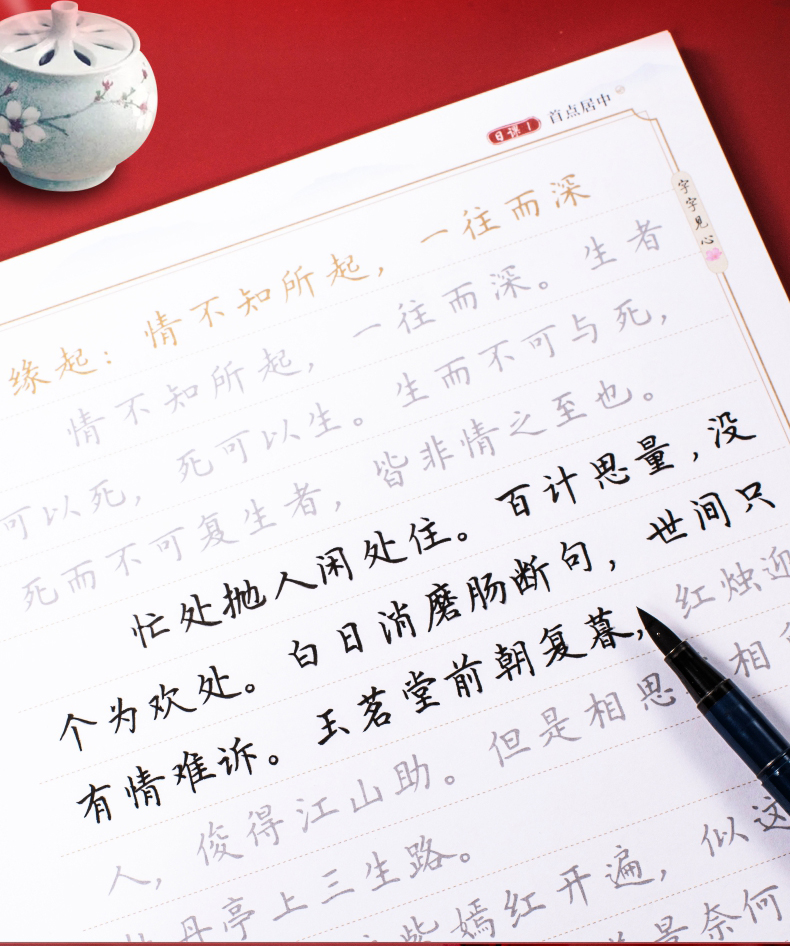 日课1 首点居中
字字见心
缘起：情不知所起，一往而深
情不知所起，一往而深。生者
可以死，死可以生。生而不可与死，
死而不可复生者，皆非情之至也。
忙处抛人闲处住。百计思量，没
个为欢处。白日消磨肠断句，世间只
有情难诉。玉茗堂前朝复暮，红烛迎
人，俊得江山助。但是相思 相
丹亭上三生路。
紫嫣红开遍，似这
景奈何